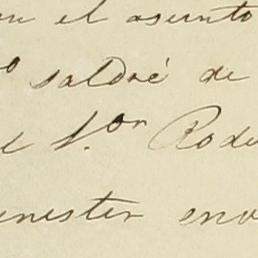 en el asunto
saldré de
el S.or Rode
enester env